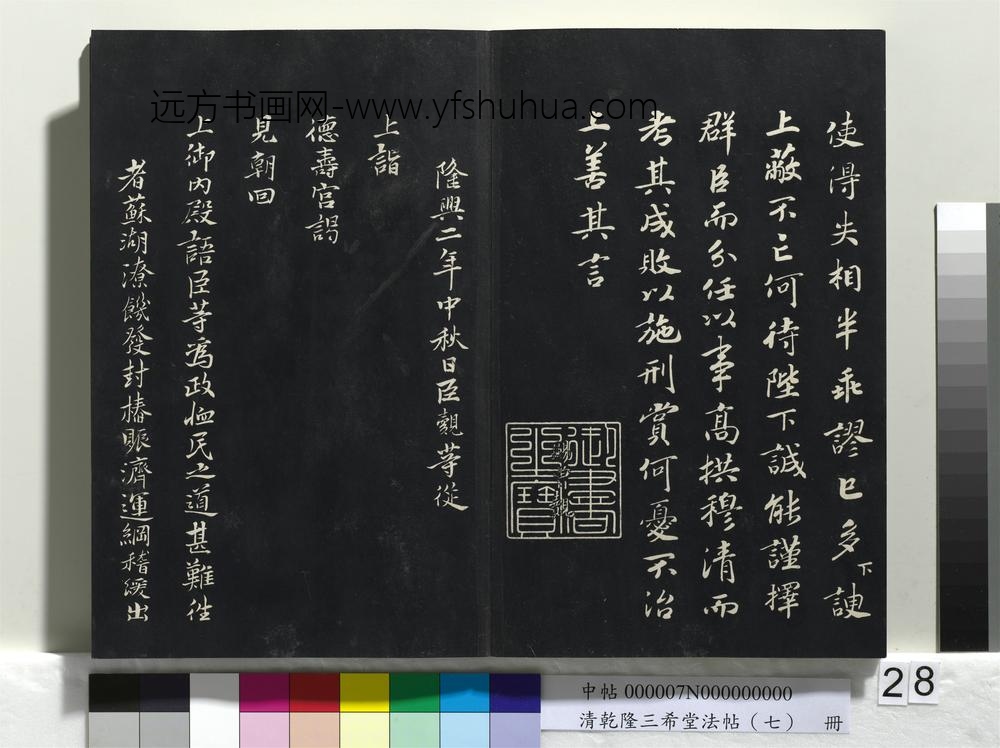 远方书画网-www.yfshuhua.com
使得失相半乖謬已多下諛
上蔽不亡何待陛下誠能謹擇
群臣而分任以事高拱穆清而
考其成敗以施刑賞何憂不治
上善其言
御書
之寶
賜曾覿
隆興二年中秋日臣覿等從
上詣
德壽宮謁
見朝回
上御內殿語臣等為政恤民之道甚難往
者蘇湖潦饑發封樁賑濟運綱稽緩出
中帖 000007N000000000
清乾隆三希堂法帖(七) 冊
28